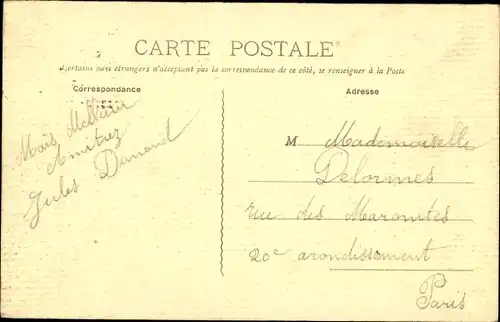 CARTE POSTALE
Certains pays étrangers n'acceptant pas la correspondance de ce côté, se renseigner à la Poste
Correspondance
Adresse
Amitiez
Jules Dumond
M Mademoiselle
Delormes
rue des Maronites
20e arondissement
Paris